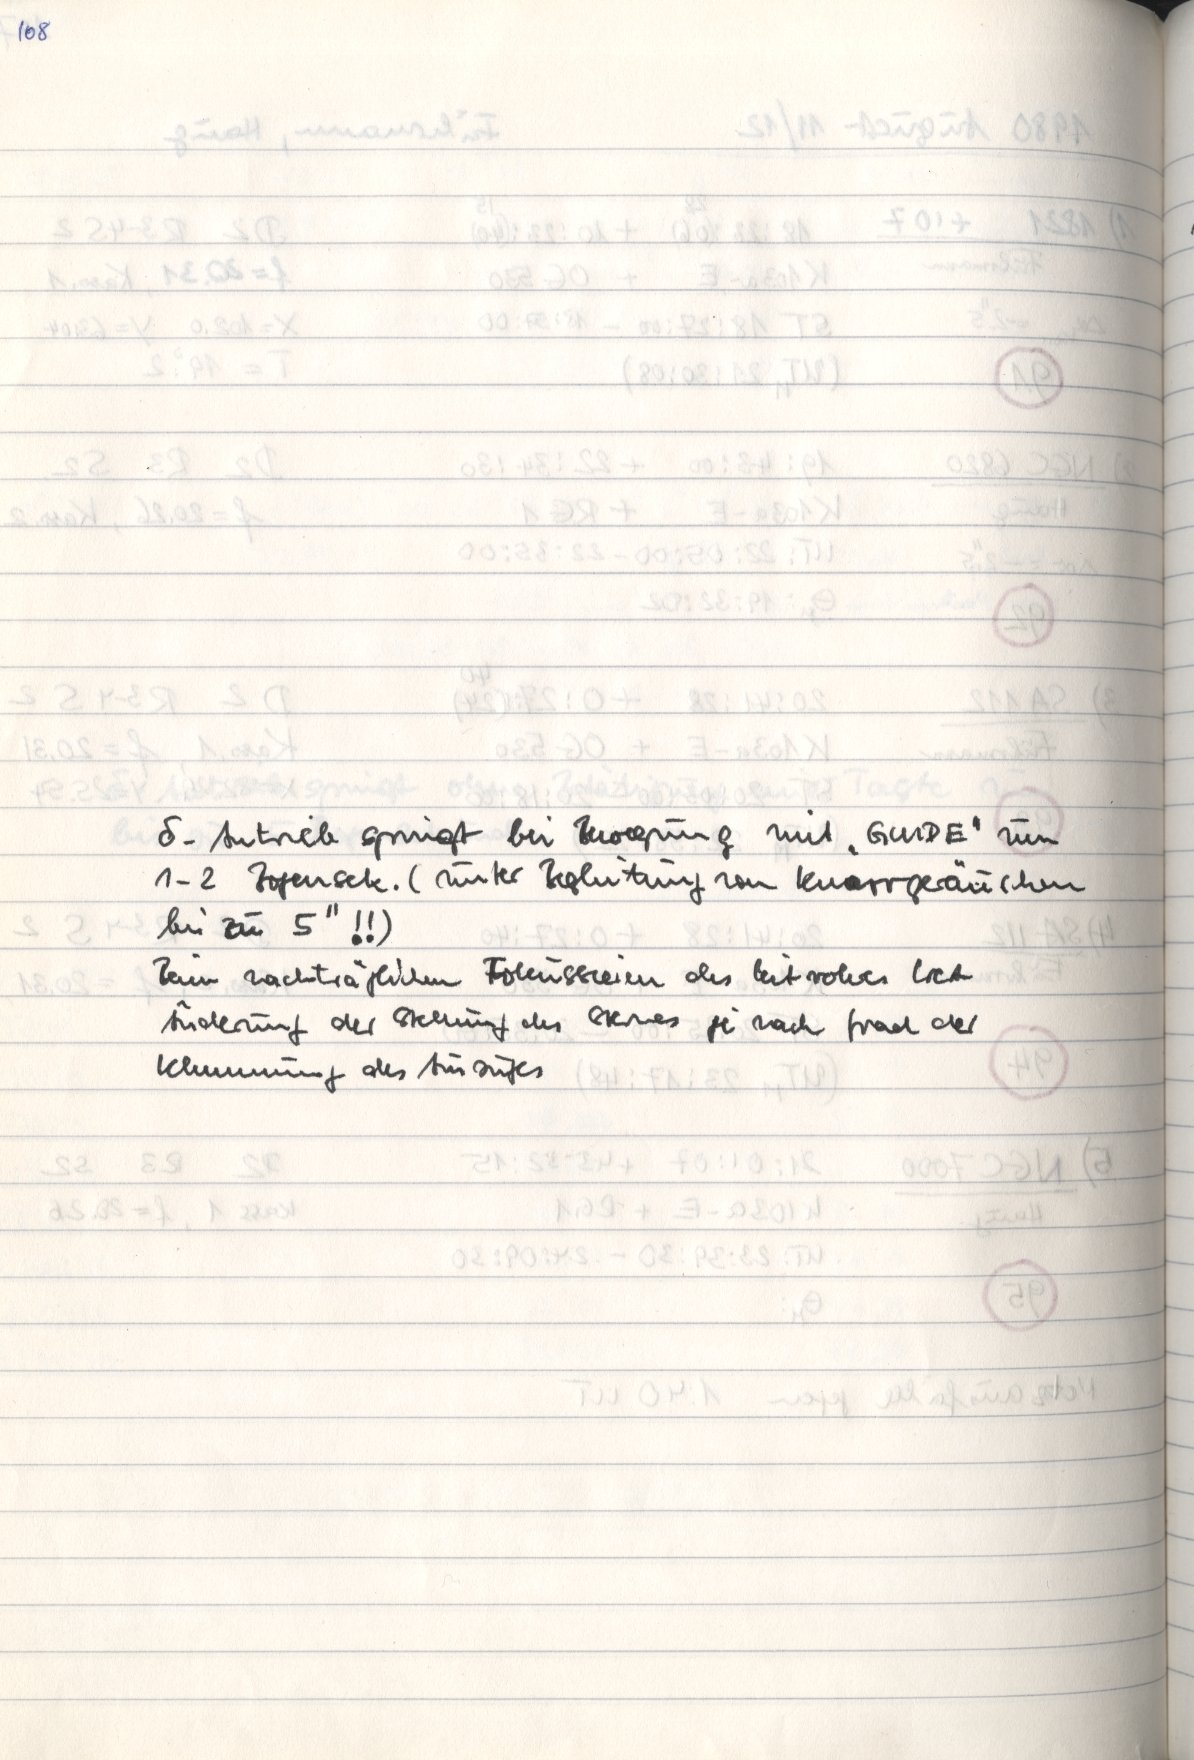 108
δ-Antrieb springt bei Bewegung mit „GUIDE" um
1-2 Bogensek. (unter Begleitung von Knarrgeräuschen
bis zu 5" !!)
Beim nachträglichen Fokussieren des Leitrohres tritt
Änderung der Stellung des Sternes je nach Grad der
Klemmung des Auszuges